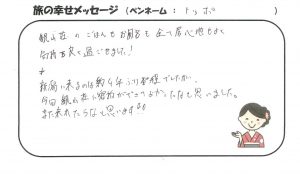 旅の幸せメッセージ（ペンネーム：トッポ）
観山荘のごはんもお風呂も全て居心地もよく
何度も楽く過ごせました！
新潟に来るのは約4年ぶり
今回観山荘に宿泊ができてよかったなと思いました。
また来れたらなと思います!!